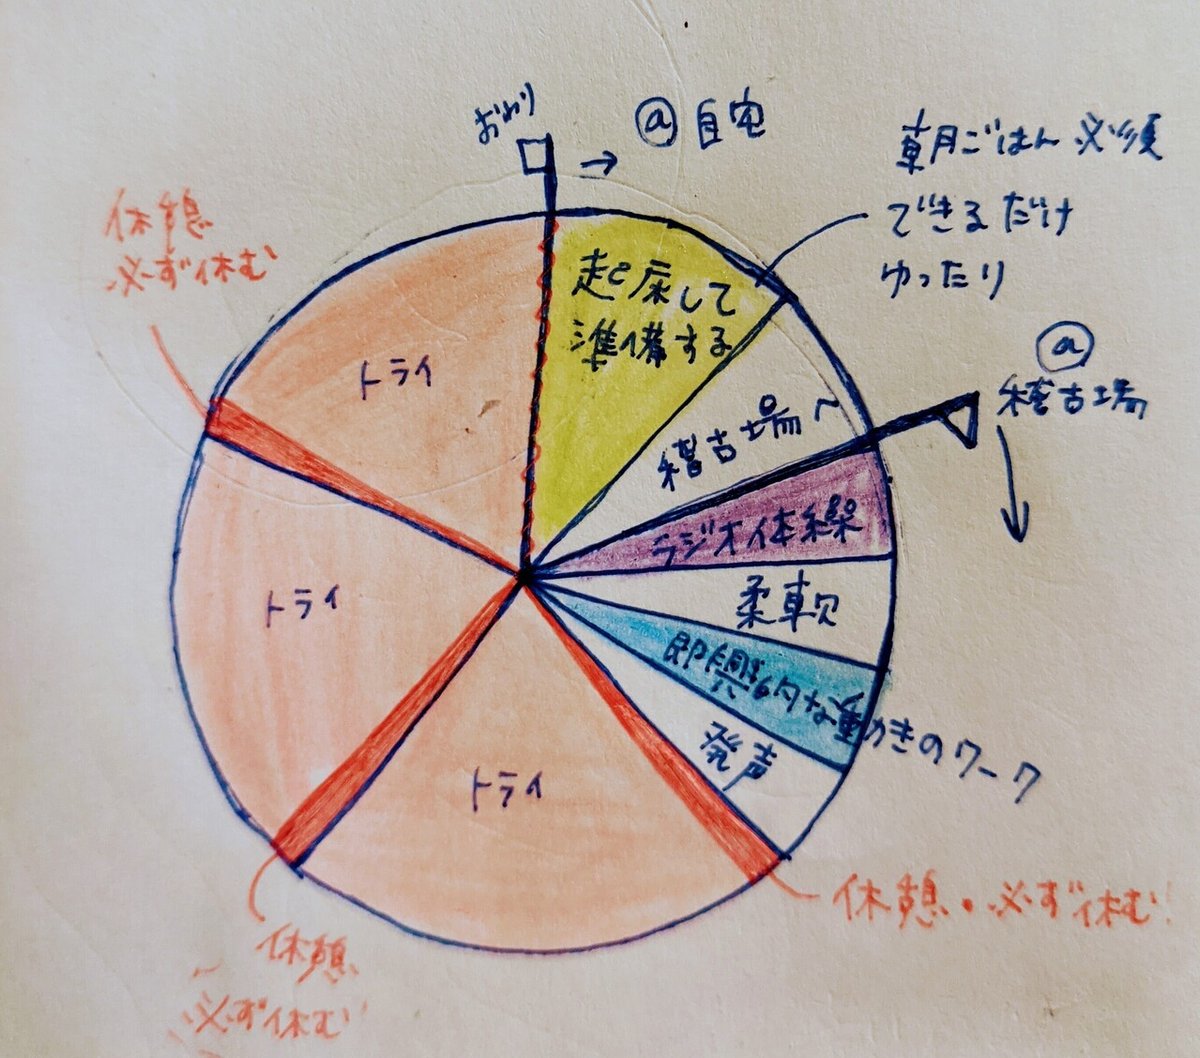 おわり
→ @自宅
朝ごはん 必須
できるだけ
ゆったり
起床して
準備する
稽古場へ
@
稽古場
ラジオ体操
柔軟
即興的な動きのワーク
発声
休憩・必ず休む!
トライ
休憩
必ず休む
トライ
休憩
必ず休む
トライ